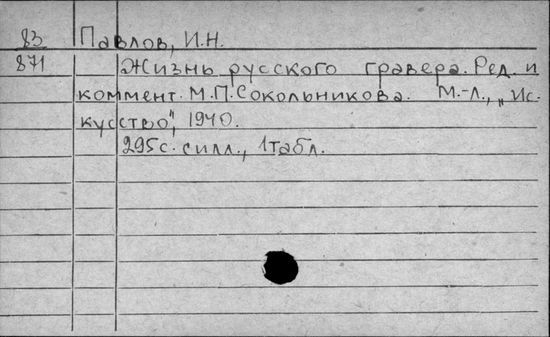 83 Павлов, И.Н.
871 Жизнь русского гравера. Ред. и
коммент. М.П.Сокольникова. М.-Л., „Ис-
кусство", 1940.
295с. силл., 1табл.